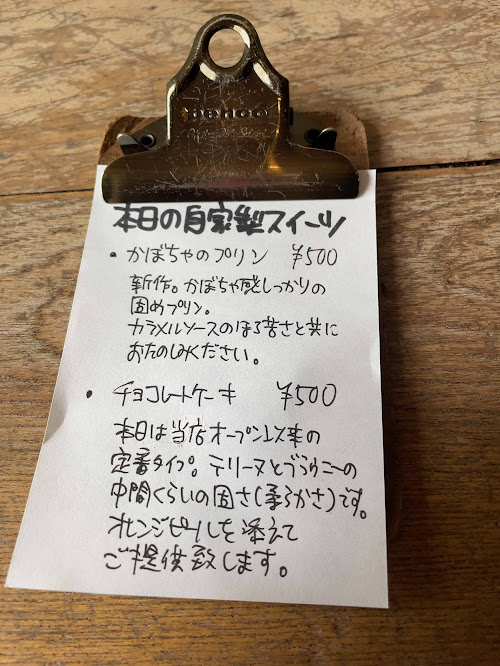 penco
本日の自家製スイーツ
・かぼちゃのプリン ¥500
新作。かぼちゃ感しっかりの
固めプリン。
カラメルソースのほろ苦さと共に
おたのしみください。
・チョコレートケーキ ¥500
本日は当店オープン以来の
定番タイプ。テリーヌとブラウニーの
中間くらいの固さ(柔らかさ)です。
オレンジピールを添えて
ご提供致します。